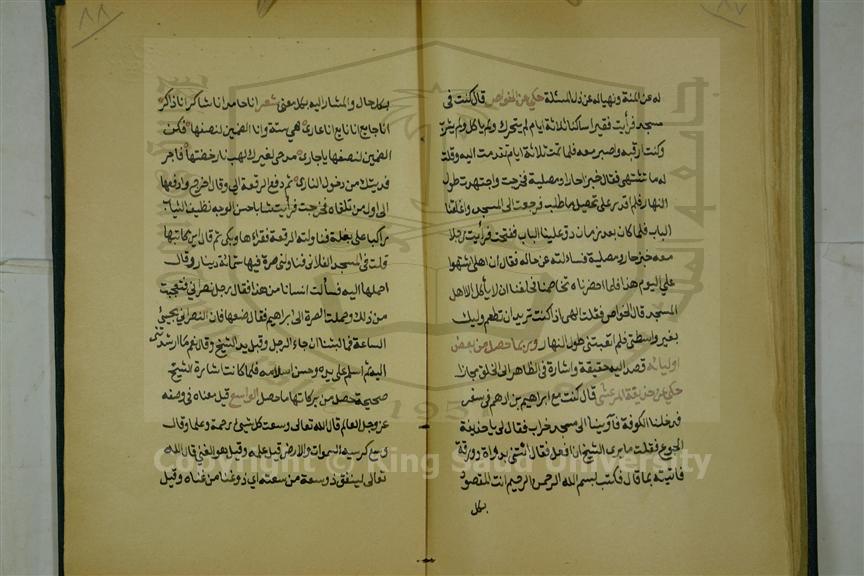 ٨٧
له عن المنة ونهياله عن ذل المسئلة حكي عن الخواص قال كنت في
مسجد فرأيت فقيرا ساكنا ثلاثة ايام لم يتحرك ولم ياكل ولم يشرب
وكنت ارقبه واصبر معه فلما تمت ثلاثة ايام تقدمت اليه وقلت
له ما تشتهي فقال خبز احارا ومصلية فخرجت واجتهدت طول
النهار فلم اقدر على تحصيل ما طلب فرجعت الى المسجد واغلقنا
الباب فلما كان بعد زمان دق علينا الباب ففتحت فرأيت رجلا
معه خبز حار ومصلية فساءلته عن حاله فقال ان اهلي اشتهوا
علي اليوم هذا فلما احضرناه تخاصمنا فحلفنا ان لا يأكل الا اهل
المسجد قال الخواص فقلت الهي اذا كنت تريد ان تطعم وليك
بغير واسطتي فلم اتعبتني طول النهار وربما حصل من بعض
اوليائه قصد اليه حقيقة واشارة في الظاهر الى الخلق مجازا
حكي عن حذيفة المرعشي قال كنت مع ابراهيم بن ادهم في سفر
فدخلنا الكوفة فآوينا الى مسجد خراب فقال لي يا حذيفة
الجوع فقلت ما يرى الشيخ ان افعل فقال ائتني بدواة وورقة
فاتيته بما قال فكتب بسم الله الرحمن الرحيم انت المقصود
بكل
٨٨
بكل حال والمشار اليه بكل معنى شعر انا حامد انا شاكر انا ذاكر
انا جايع انا نايع انا عاري هي ستة وانا الضمين لنصفها فكن
الضمين لنصفها يا باري مدحي لغيرك لهب نار خضتها فاجر
فديتك من دخول النار ثم دفع الرقعة الي وقال اخرج وارفعها
الى اول من تلقاه فخرجت فرأيت شابا حسن الوجه نظيف الثياب
راكبا على بغلة فناولته الرقعة فقرأها وبكى ثم قال اين كاتبها
قلت في المسجد الفلاني فناولني صرة فيها ستمائة دينار وقال
احملها اليه فسألت انسانا من هذا فقال رجل نصراني فتعجبت
من ذلك وصلت الصرة الى ابراهيم فقال ضعها فان النصراني يجيئ
الساعة فما لبثنا ان جاء الرجل وقبل يد الشيخ وقال نعم ما ارشدتني
اليه ثم اسلم على يده وحسن اسلامه فلما كانت اشارة الشيخ
صحيحة حصل من بركاتها ما حصل الواسع قيل معناه في وصفه
عز وجل العالم قال الله تعالى وسعت كل شيئ رحمة وعلما وقال
وسع كرسيه السموات والارض قيل علمه وقيل هو الغني قال الله
تعالى لينفق ذو سعة من سعته اي ذو غنا من غناه وقيل
Copyright © King Saud University
1957